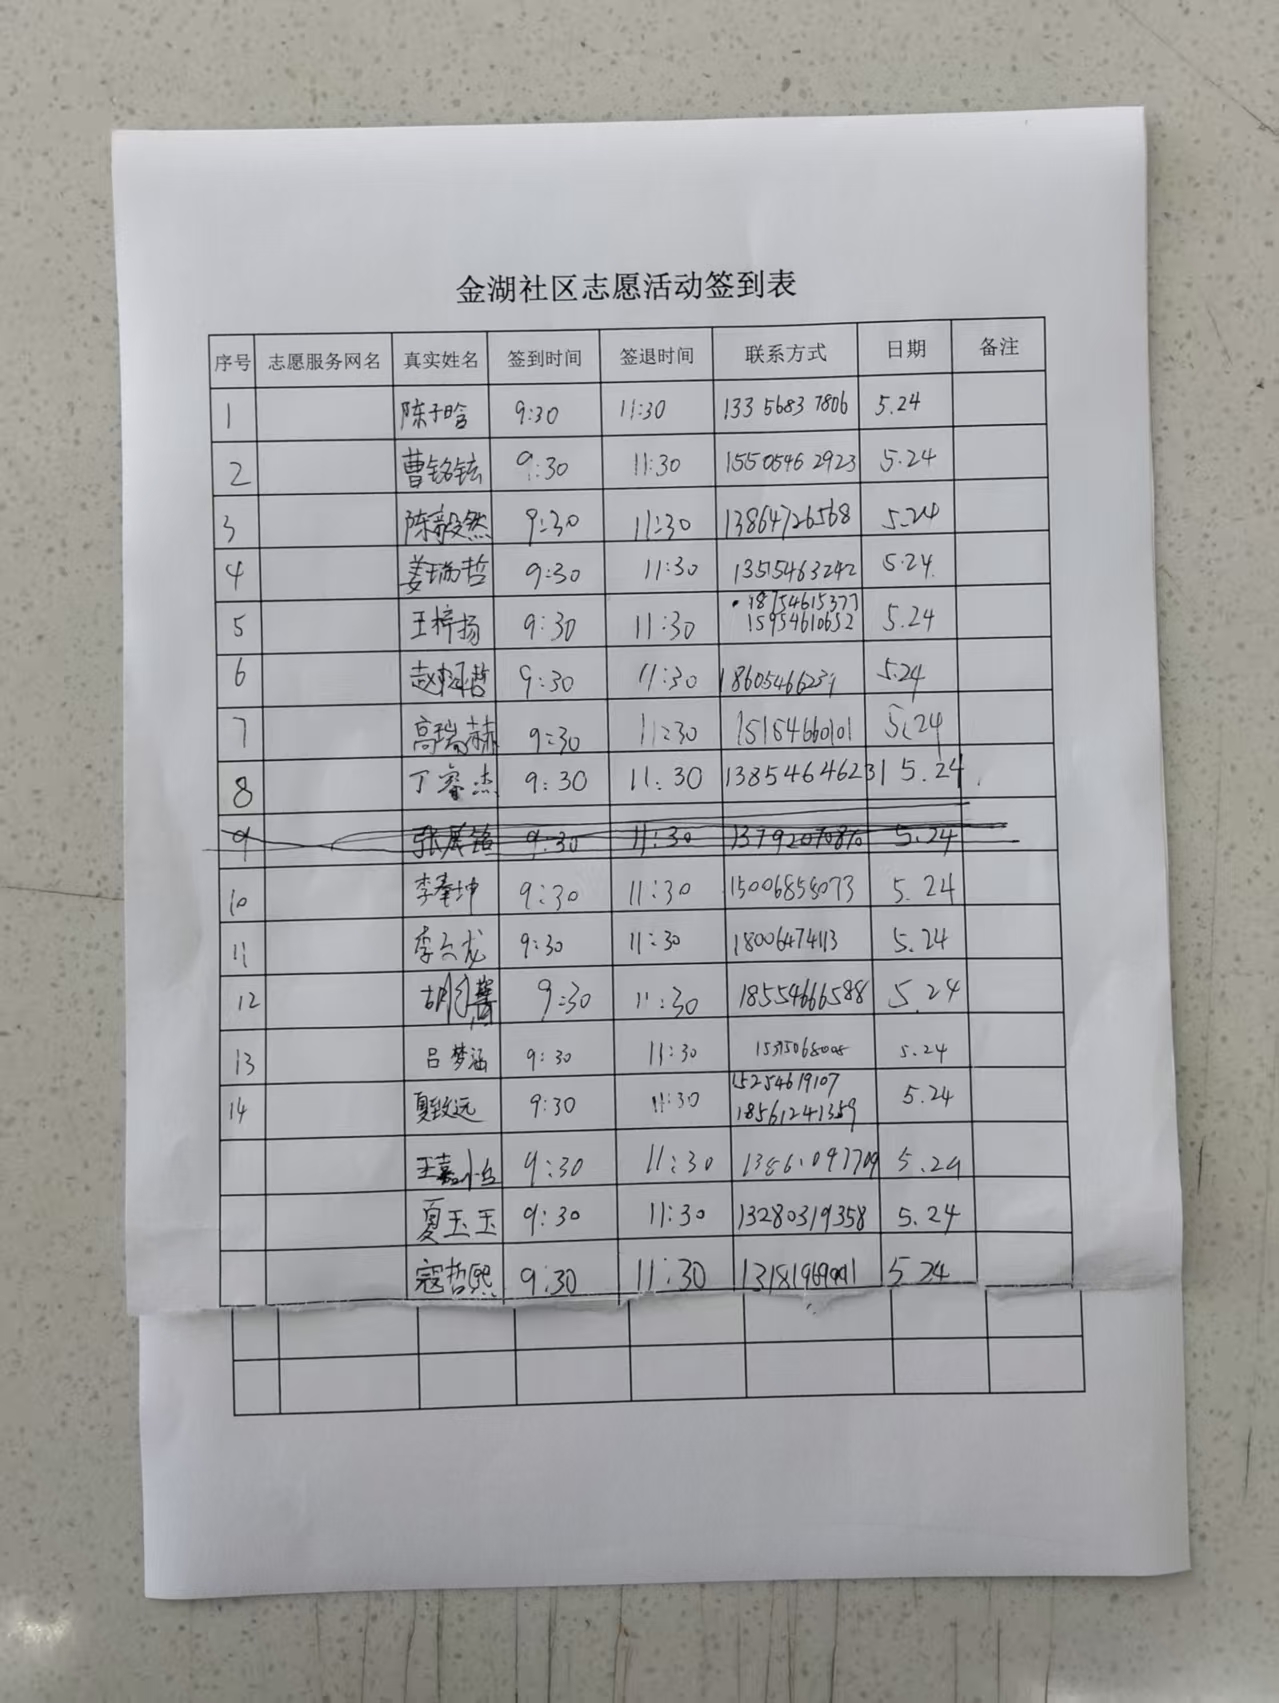 金湖社区志愿活动签到表
序号 志愿服务网名 真实姓名 签到时间 签退时间 联系方式 日期 备注
1 陈子晗 9:30 11:30 133 5683 7806 5.24
2 曹铭铉 9:30 11:30 155 0546 2923 5.24
3 陈毅然 9:30 11:30 13864726568 5.24
4 姜瑞哲 9:30 11:30 13515463242 5.24
5 王梓扬 9:30 11:30 18754615377 5.24
15954610652
6 9:30 11:30 18605466239 5.24
7 高瑞赫 9:30 11:30 15154660101 5.24
8 丁睿杰 9:30 11:30 13854646231 5.24
9 9:30 11:30 5.24
10 李奉坤 9:30 11:30 15006858073 5.24
11 9:30 11:30 18006474113 5.24
12 9:30 11:30 18554666588 5.24
13 吕梦涵 9:30 11:30 5.24
14 夏致远 9:30 11:30 15254619107 5.24
18561241359
9:30 11:30 5.24
夏玉玉 9:30 11:30 13280319358 5.24
寇哲熙 9:30 11:30 5.24